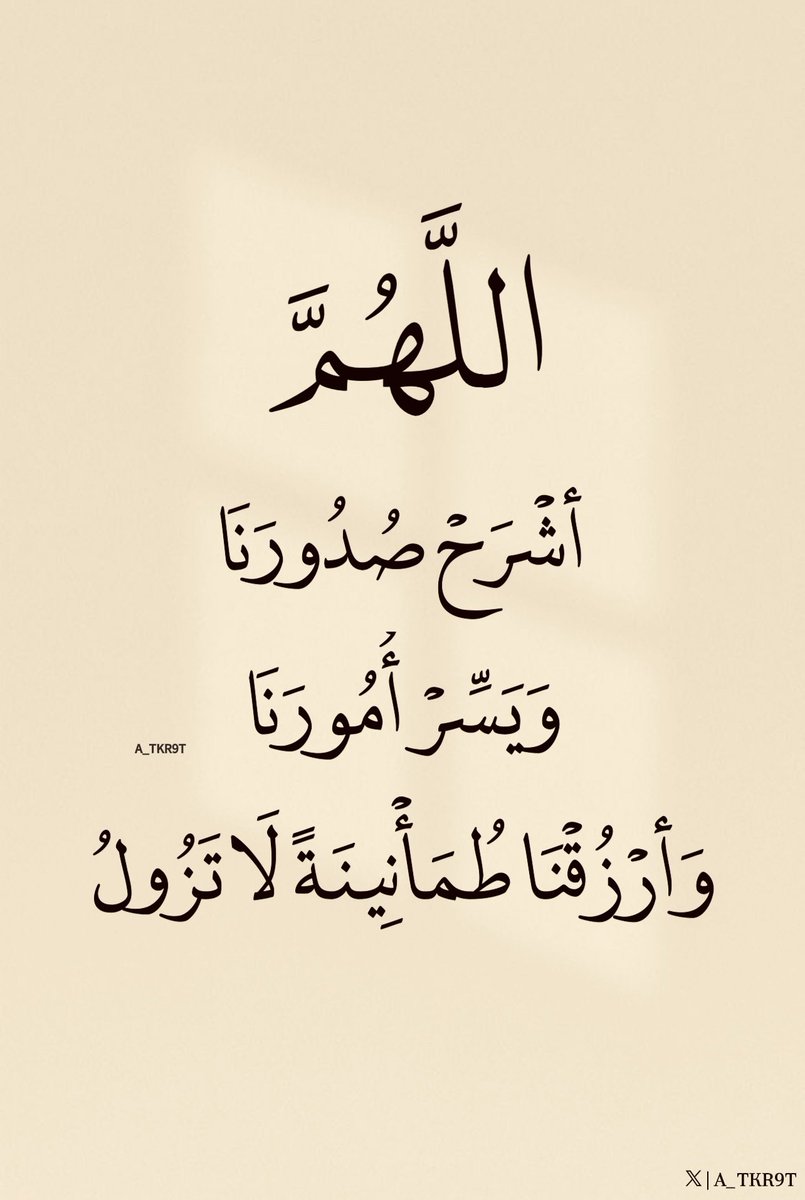 اللَّهُمَّ
أشْرَحْ صُدُورَنَا
وَيَسِّرْ أُمُورَنَا
A_TKR9T
وَأرْزُقْنَا طُمَأْنِينَةً لَا تَزُولُ
𝕏 | A_TKR9T